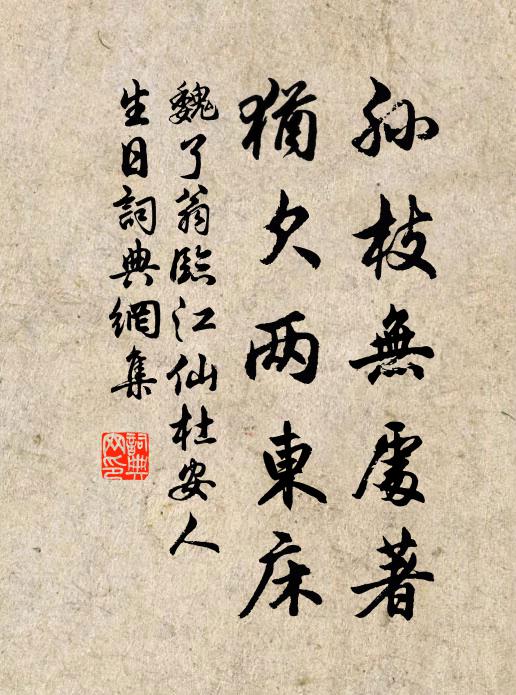 孙枝無處著
猶欠两東床
魏了翁臨江仙杜安人
生日詞典網集
詞典网印